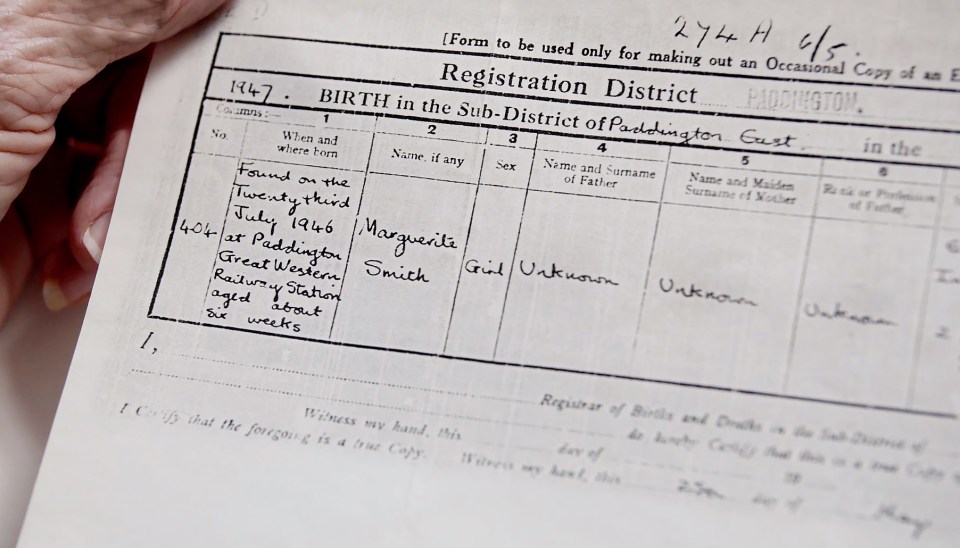 274 A 6/5.
[Form to be used only for making out an Occasional Copy of an E
Registration District PADDINGTON.
1947. BIRTH in the Sub-District of Paddington East in the
Columns:— 1 2 3 4 5 6
No. When and where born Name, if any Sex Name and Surname of Father Name and Maiden Surname of Mother Rank or Profession of Father
404
Found on the
Twenty third
July 1946
at Paddington
Great Western
Railway Station
aged about
six weeks
Marguerite
Smith
Girl
Unknown
Unknown
Unknown
I,
Registrar of Births and Deaths in the Sub-District of
do hereby Certify that this is a true Copy
Witness my hand, this day of 19
I Certify that the foregoing is a true Copy. Witness my hand, this day of May